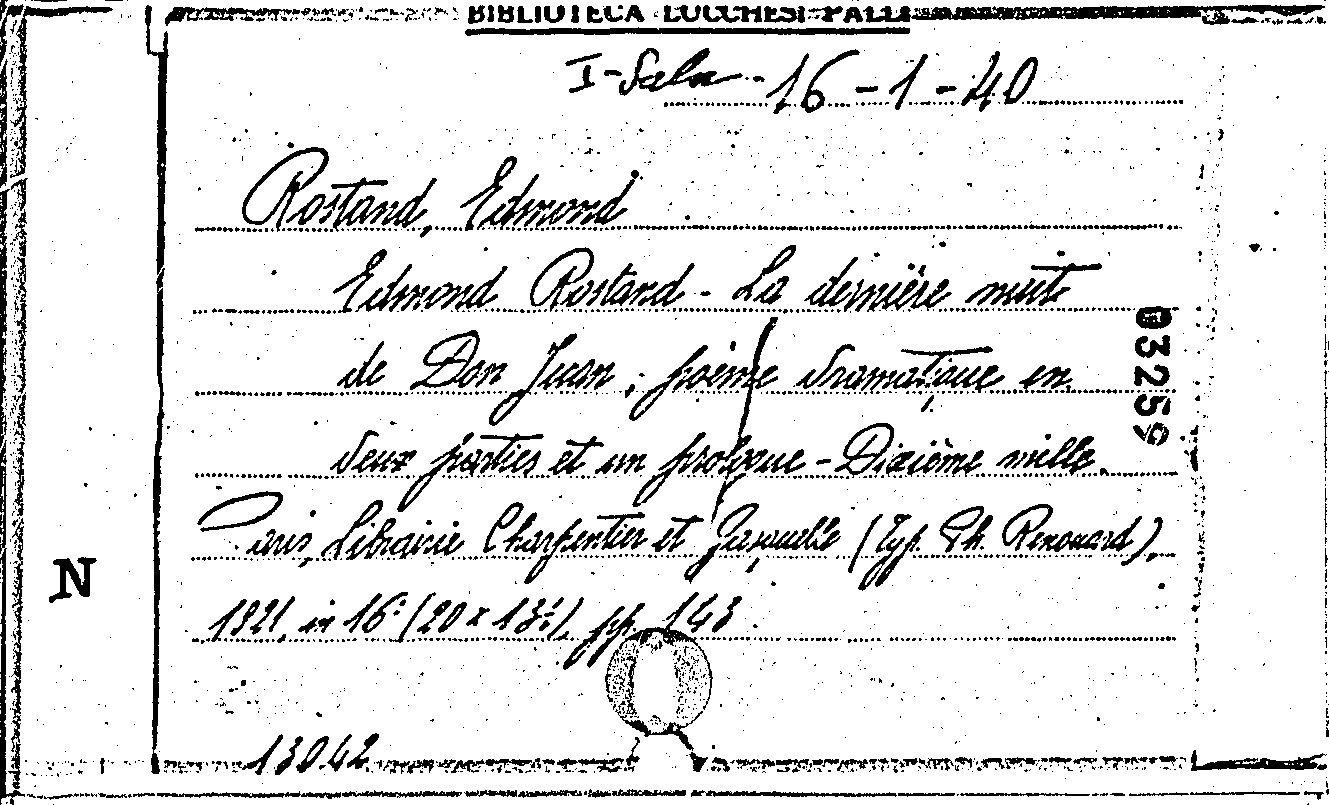 BIBLIOTECA LUCCHESI-PALLI
I-Sala - 16 - 1 - 40
Rostand, Edmond
Edmond Rostand - La dernière nuit
de Don Juan, poème dramatique en
deux parties et un prologue - Dixième mille.
Paris, Librairie Charpentier et Fasquelle (Typ. Ph. Renouard),
1921, in 16° (20 x 13½), pp. 143
03259
N
13042